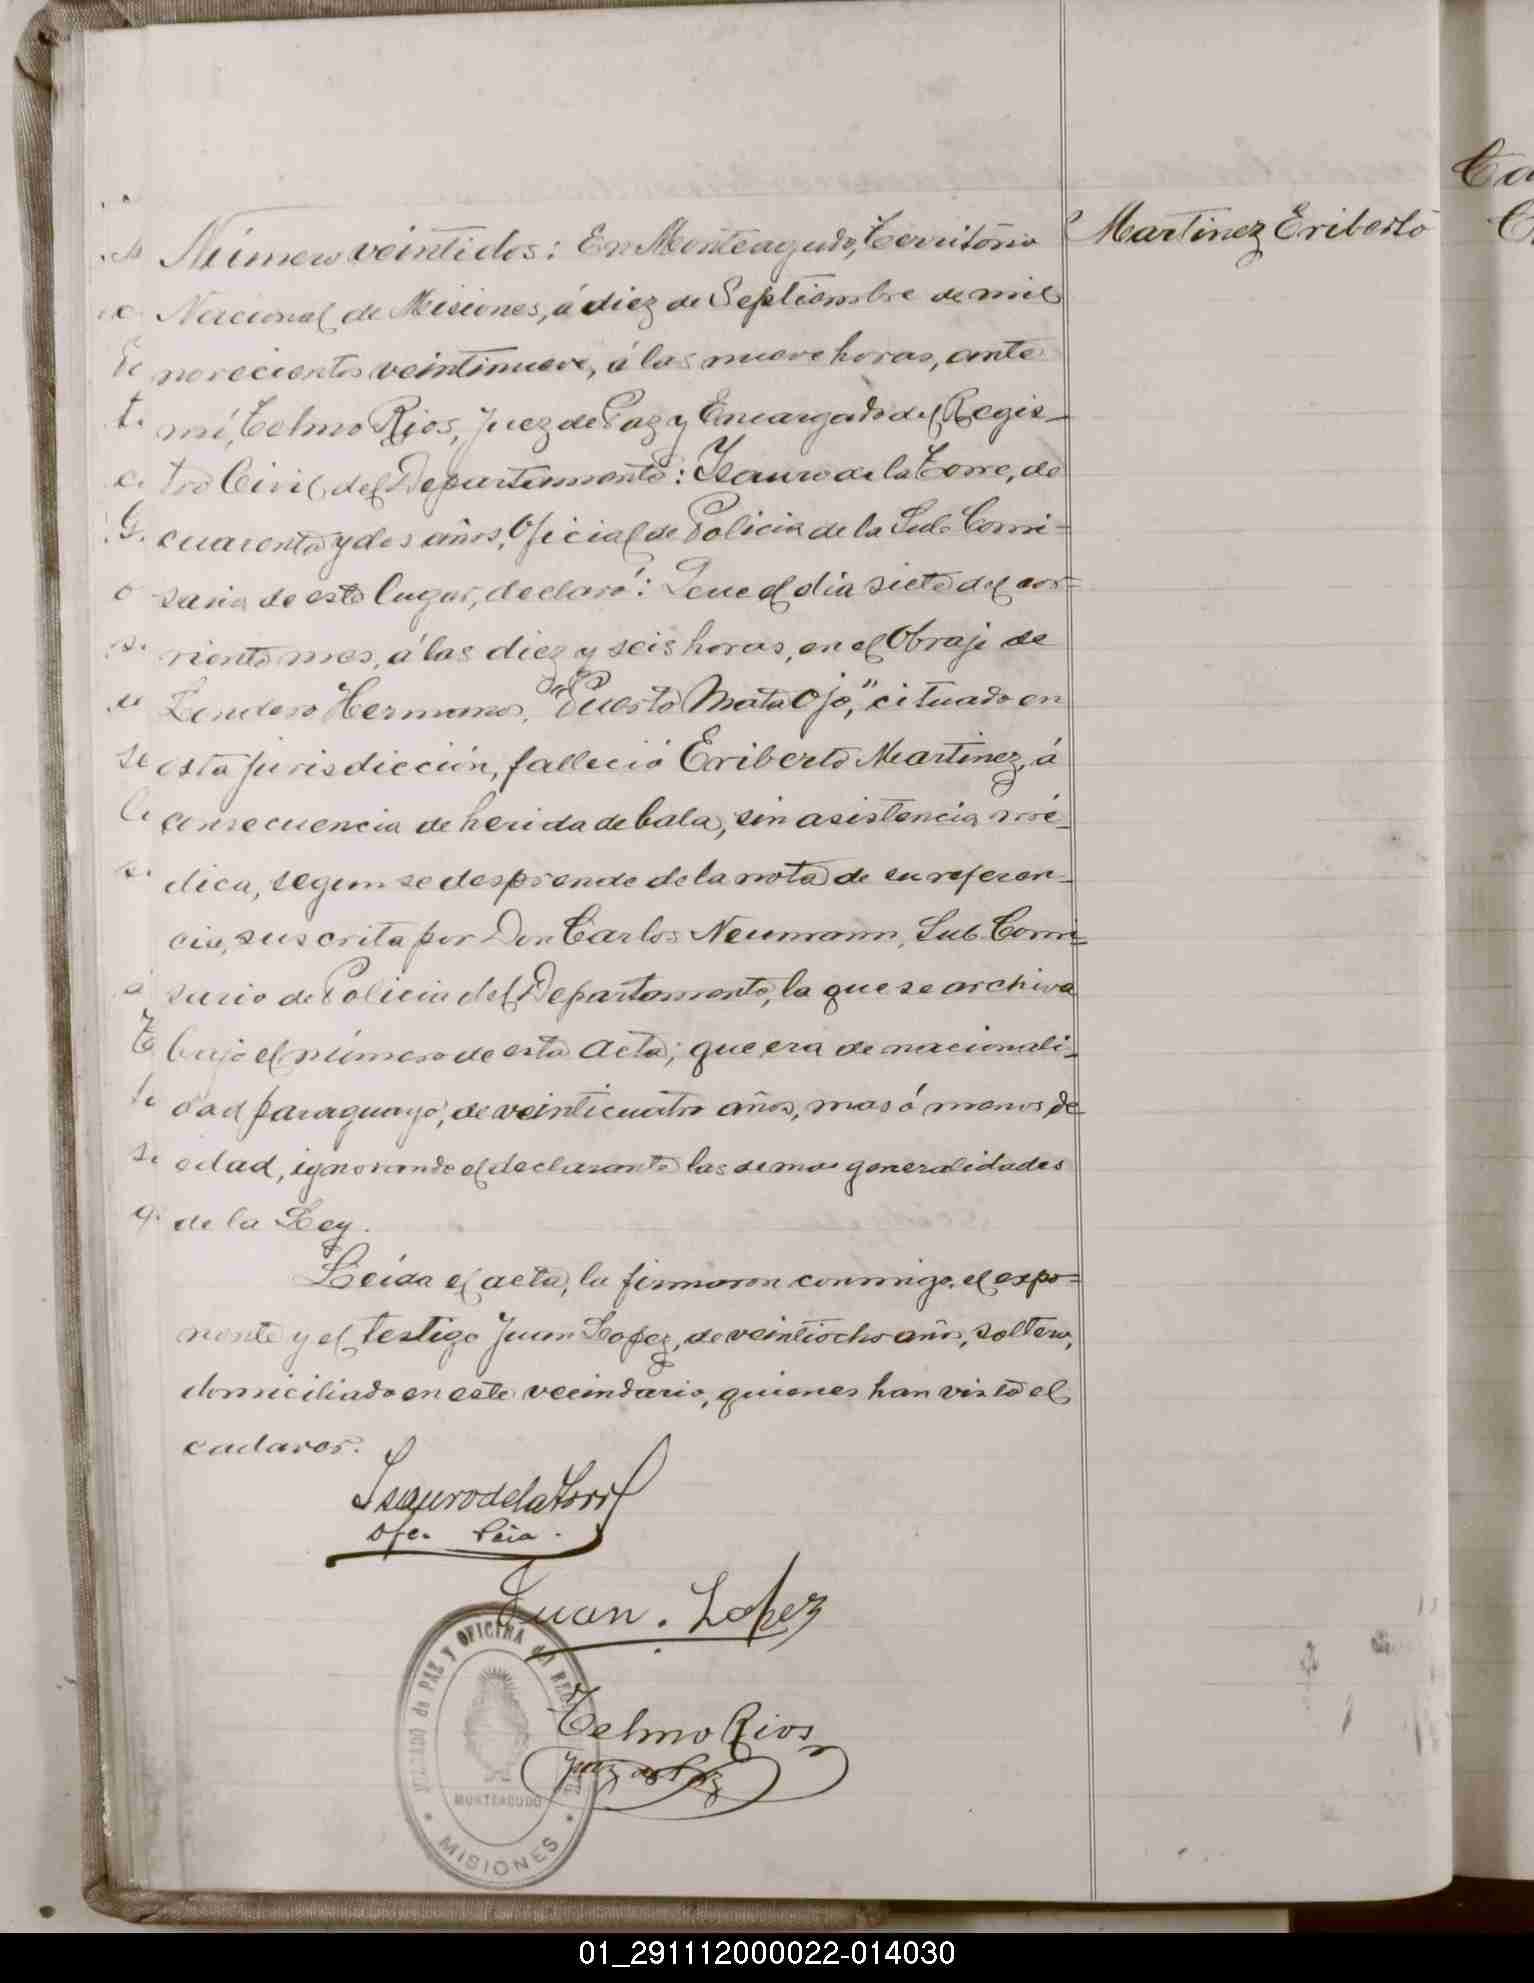 Martinez Eriberto
Número veintidos: En Monteagudo, Territorio
Nacional de Misiones, á diez de Septiembre de mil
novecientos veintinueve, á las nueve horas, ante
mí, Telmo Rios, Juez de Paz y Encargado del Regis-
tro Civil del Departamento: Isauro de la Torre, de
cuarenta y dos años, Oficial de Policia de la Sub-Comi=
saria de este lugar, declaró: Que el dia siete del cor=
riente mes, á las diez y seis horas, en el Obraje de
Hermanos, "Puesto Mata Ojo," cituado en
esta jurisdicción, falleció Eriberto Martinez, á
consecuencia de herida de bala, sin asistencia mé-
dica, segun se desprende de la nota de su referen-
cia, suscrita por Don Carlos Neumann, Sub-Comi-
sario de Policia del Departamento, la que se archiva
bajo el número de esta Acta; que era de nacionali-
dad paraguayo, de veinticuatro años, mas ó menos de
edad, ignorando el declarante las demas generalidades
de la Ley.
Leída el acta, la firmaron conmigo, el expo=
nente y el testigo Juan Lopez, de veintiocho años, soltero,
domiciliado en este vecindario, quienes han visto el
cadaver.
Isauro de la Torre
Ofc. Pcia.
Juan. Lopez
JUZGADO de PAZ Y OFICINA del REG.
Telmo Rios
Juez de Paz
MONTEAGUDO
MISIONES
01_291112000022-014030